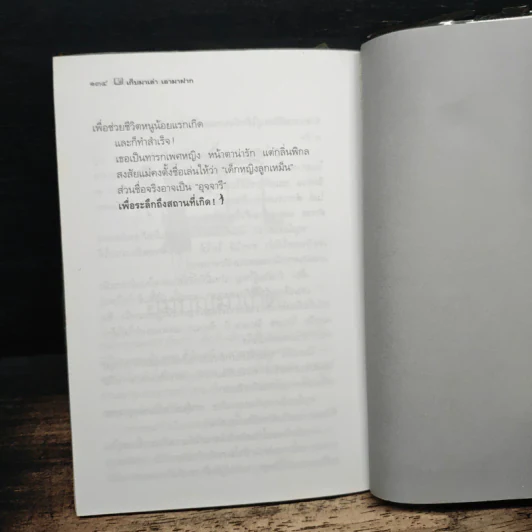 ๒๓๔ เก็บมาเล่า เอามาฝาก
เพื่อช่วยชีวิตหนูน้อยแรกเกิด
และก็ทำสำเร็จ!
เธอเป็นทารกเพศหญิง หน้าตาน่ารัก แต่กลิ่นพิกล
สงสัยแม่คงตั้งชื่อเล่นให้ว่า "เด็กหญิงลูกเหม็น"
ส่วนชื่อจริงอาจเป็น "อุจจารี"
เพื่อระลึกถึงสถานที่เกิด!